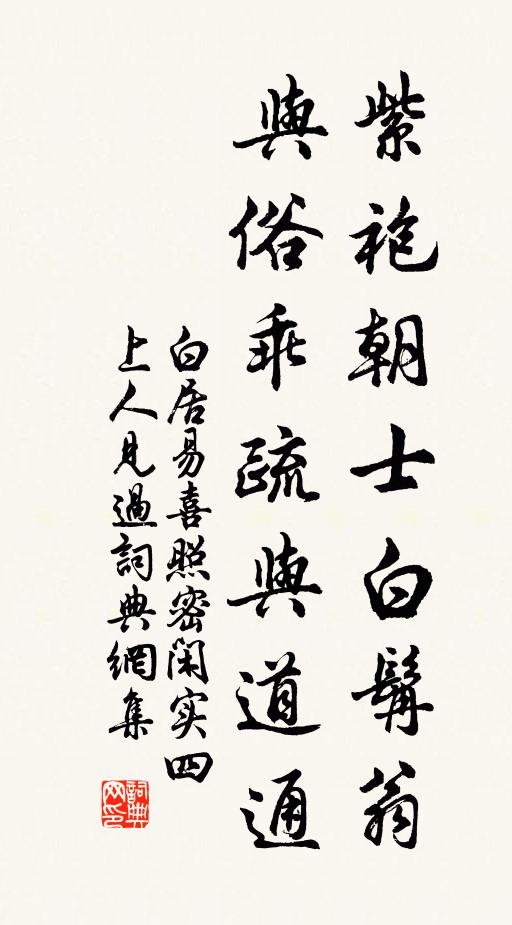 紫袍朝士白髯翁
與俗乖疏與道通
白居易喜照密閑实四
上人見過詞典網集
詞典
网印